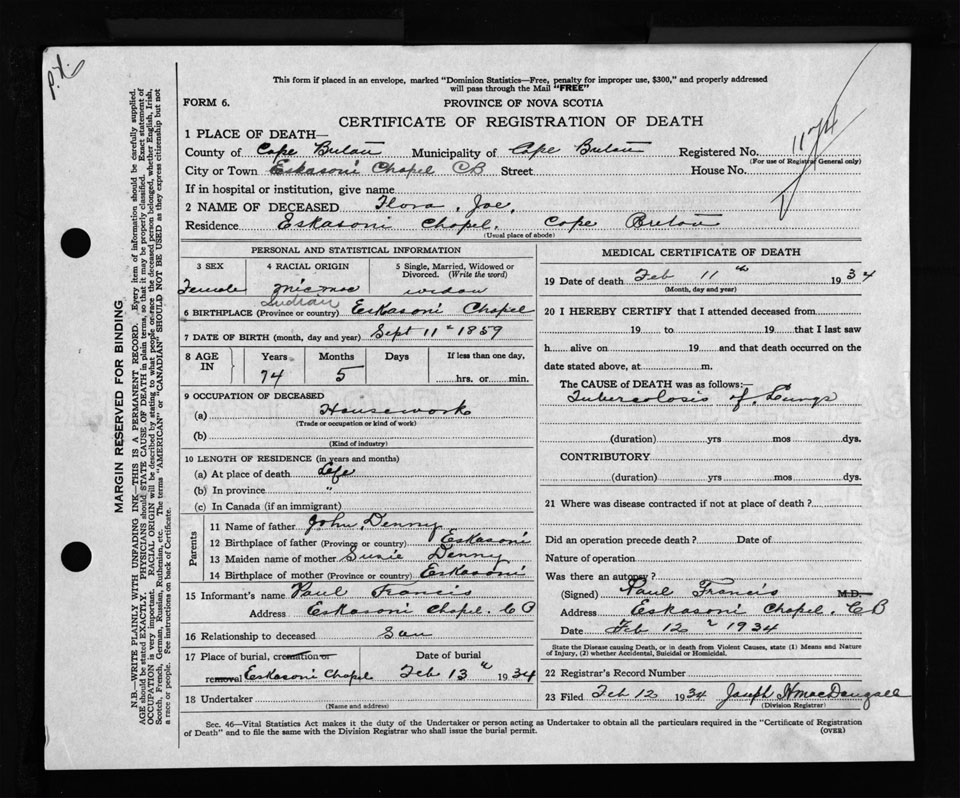 P.X.
This form if placed in an envelope, marked "Dominion Statistics—Free, penalty for improper use, $300," and properly addressed
will pass through the Mail "FREE"
FORM 6. PROVINCE OF NOVA SCOTIA
CERTIFICATE OF REGISTRATION OF DEATH
1 PLACE OF DEATH—
County of Cape Breton Municipality of Cape Breton Registered No. 1174
(For use of Registrar General only)
City or Town Eskasoni Chapel CB Street House No.
If in hospital or institution, give name
2 NAME OF DECEASED Flora, Joe,
Residence Eskasoni Chapel. Cape Breton
(Usual place of abode)
PERSONAL AND STATISTICAL INFORMATION
3 SEX 4 RACIAL ORIGIN 5 Single, Married, Widowed or
Divorced. (Write the word)
Female micmac widow
Indian
6 BIRTHPLACE (Province or country) Eskasoni Chapel
7 DATE OF BIRTH (month, day and year) Sept 11th 1859
8 AGE IN Years Months Days If less than one day,
74 5 hrs. or min.
9 OCCUPATION OF DECEASED
(a) Housework
(Trade or occupation or kind of work)
(b)
(Kind of industry)
10 LENGTH OF RESIDENCE (in years and months)
(a) At place of death Life
(b) In province "
(c) In Canada (if an immigrant)
Parents
11 Name of father John, Denny
12 Birthplace of father (Province or country) Eskasoni
13 Maiden name of mother Susie Denny
14 Birthplace of mother (Province or country) Eskasoni
15 Informant's name Paul Francis
Address Eskasoni Chapel. CB
16 Relationship to deceased Son
17 Place of burial, cremation or Date of burial
removal Eskasoni Chapel Feb 13th 1934
18 Undertaker
(Name and address)
MEDICAL CERTIFICATE OF DEATH
19 Date of death Feb 11th 1934
(Month, day and year)
20 I HEREBY CERTIFY that I attended deceased from
19 to 19 that I last saw
h alive on 19 and that death occurred on the
date stated above, at m.
The CAUSE OF DEATH was as follows:—
Tubercolosis of Lungs
(duration) yrs mos dys.
CONTRIBUTORY
(duration) yrs. mos dys.
21 Where was disease contracted if not at place of death?
Did an operation precede death? Date of
Nature of operation
Was there an autopsy?
(Signed) Paul Francis M.D.
Address Eskasoni Chapel. CB
Date Feb 12th 1934
State the Disease causing Death, or in death from Violent Causes, state (1) Means and Nature
of Injury, (2) whether Accidental, Suicidal or Homicidal.
22 Registrar's Record Number
23 Filed Feb 12 1934 Joseph H MacDougall
(Division Registrar)
Sec. 46—Vital Statistics Act makes it the duty of the Undertaker or person acting as Undertaker to obtain all the particulars required in the "Certificate of Registration
of Death" and to file the same with the Division Registrar who shall issue the burial permit.
(OVER)
MARGIN RESERVED FOR BINDING
N.B.—WRITE PLAINLY WITH UNFADING INK—THIS IS A PERMANENT RECORD. Every item of information should be carefully supplied.
AGE should be stated EXACTLY. PHYSICIANS should STATE CAUSE OF DEATH in plain terms, so that it may be properly classified. Exact statement of
OCCUPATION is very important. RACIAL ORIGIN will be described by stating to what people or race the deceased person belonged, whether English, Irish,
Scotch, French, German, Russian, Ruthenian, etc. The terms "AMERICAN" or "CANADIAN" SHOULD NOT BE USED as they express citizenship but not
a race or people. See instructions on back of Certificate.